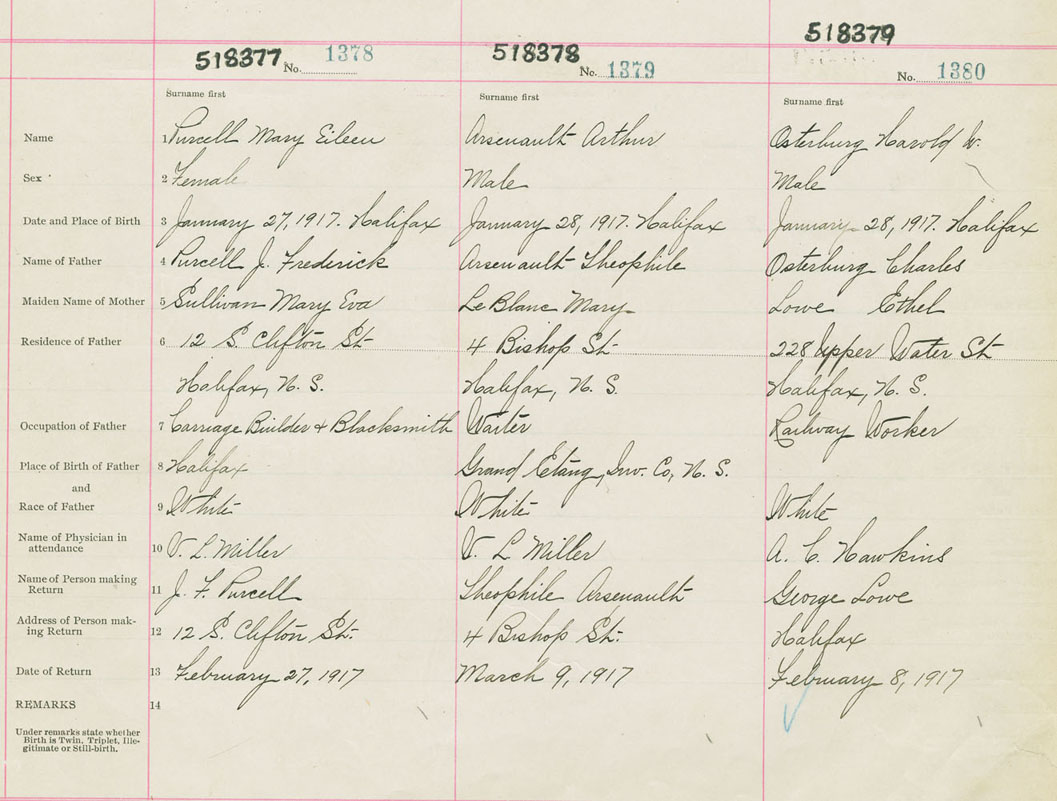 518377 No. 1378 518378 No. 1379 518379 No. 1380
Surname first Surname first Surname first
Name 1 Purcell Mary Eileen Arsenault Arthur Osterburg Harold W.
Sex 2 Female Male Male
Date and Place of Birth 3 January 27, 1917. Halifax January 28, 1917. Halifax January 28, 1917. Halifax
Name of Father 4 Purcell J. Frederick Arsenault Theophile Osterburg Charles
Maiden Name of Mother 5 Sullivan Mary Eva LeBlanc Mary Lowe Ethel
Residence of Father 6 12 S. Clifton St 4 Bishop St. 228 Upper Water St
Halifax, N. S. Halifax, N. S. Halifax, N. S.
Occupation of Father 7 Carriage Builder & Blacksmith Waiter Railway Worker
Place of Birth of Father 8 Halifax Grand Etang, Inv. Co, N. S.
and
Race of Father 9 White White White
Name of Physician in
attendance 10 V. L. Miller V. L Miller A. C. Hawkins
Name of Person making
Return 11 J. F. Purcell Theophile Arsenault George Lowe
Address of Person mak-
ing Return 12 12 S. Clifton St. 4 Bishop St. Halifax
Date of Return 13 February 27, 1917 March 9, 1917 February 8, 1917
REMARKS 14
Under remarks state whether
Birth is Twin. Triplet, Ille-
gitimate or Still-birth.